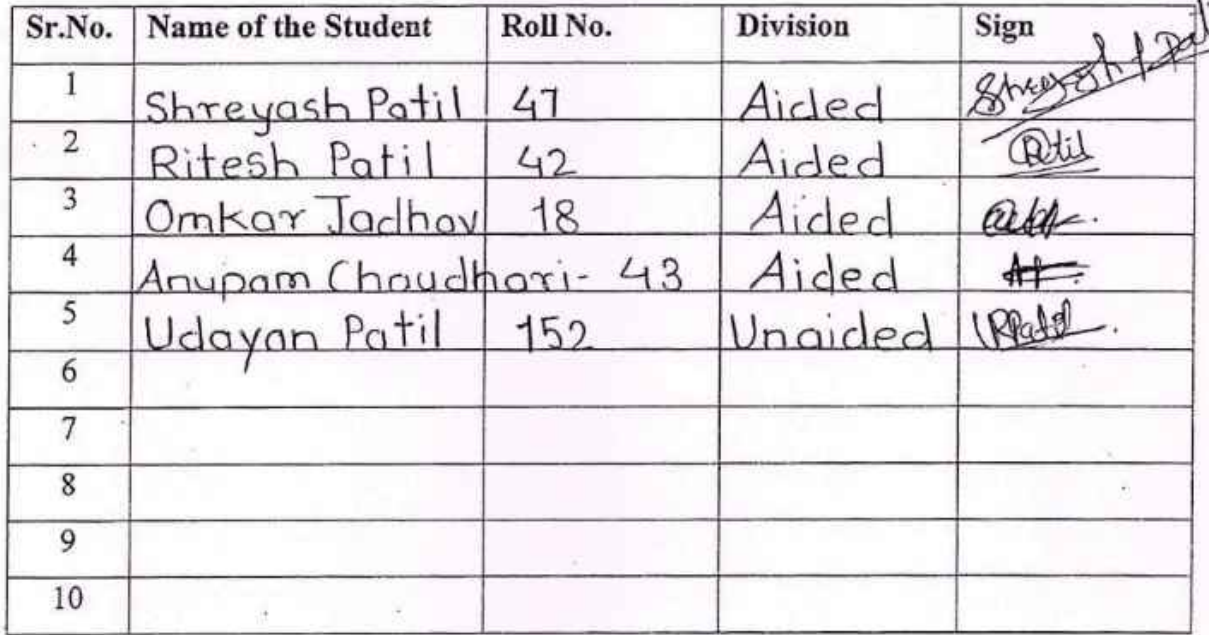 Sr.No. Name of the Student Roll No. Division Sign
1 Shreyash Patil 47 Aided Shreyash Patil
2 Ritesh Patil 42 Aided Patil
3 Omkar Jadhav 18 Aided
4 Anupam Chaudhari- 43 Aided
5 Udayan Patil 152 Unaided URPatil
6
7
8
9
10